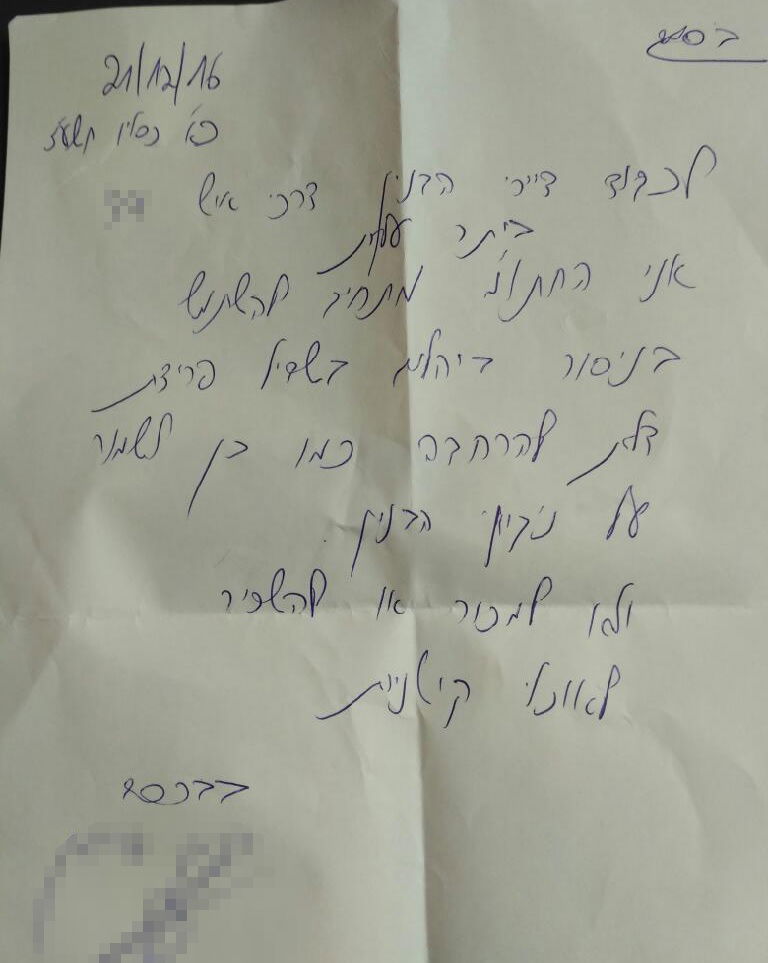 בסמ
21/12/16
כא' כסליו תשע"ז
לכבוד דיירי הבנין דרכי איש
ביתר עלית
אני החתום מתחיב להשתמש
בניסור ביהלום בשביל פריצת
דלת להרחבה כמו כן לשמור
על נקיון הבנין.
ולא למכור או להשכיר
לאוכל קישנית
בברכה